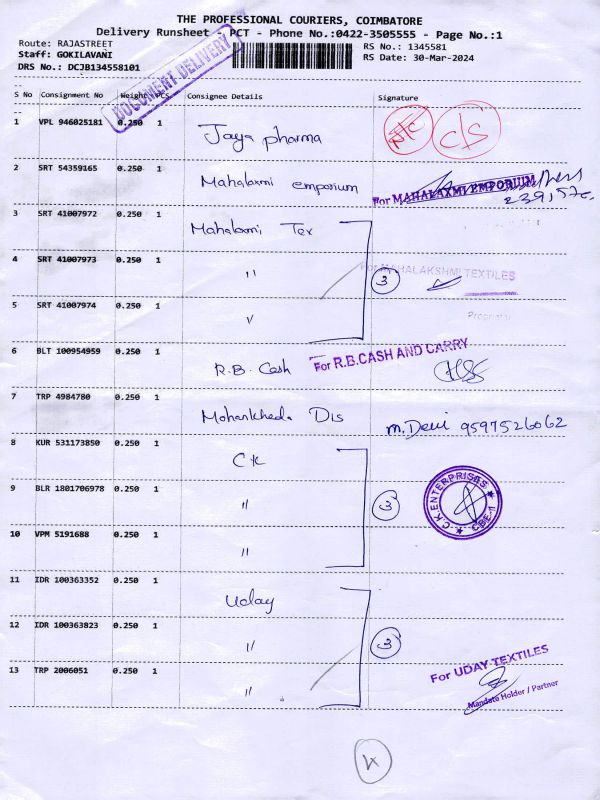 THE PROFESSIONAL COURIERS, COIMBATORE
Delivery Runsheet - PCT - Phone No.:0422-3505555 - Page No.:1
Route: RAJASTREET
RS No.: 1345581
Staff: GOKILAVANI
RS Date: 30-Mar-2024
DRS No.: DCJB134558101
DOCUMENT DELIVERY
S No Consignment No Weight PCS Consignee Details Signature
1 VPL 946025181 0.250 1 Jaya pharma C/S
2 SRT 54359165 0.250 1 Mahalaxmi emporium For MAHALAXMI EMPORIUM
3 SRT 41007972 0.250 1 Mahalaxmi Tex
4 SRT 41007973 0.250 1 " 3 For MAHALAKSHMI TEXTILES
5 SRT 41007974 0.250 1 Proprietor
6 BLT 100954959 0.250 1 R.B. Cash For R.B.CASH AND CARRY
7 TRP 4984780 0.250 1 Mohankheda Dis M. Devi 9597526062
8 KUR 531173850 0.250 1 CK
9 BLR 1801706978 0.250 1 " 3 C.K. ENTERPRISES CBE-1
10 VPM 5191688 0.250 1 "
11 IDR 100363352 0.250 1 Uday
12 IDR 100363823 0.250 1 " 3
13 TRP 2006051 0.250 1 " For UDAY TEXTILES
Mandate Holder / Partner